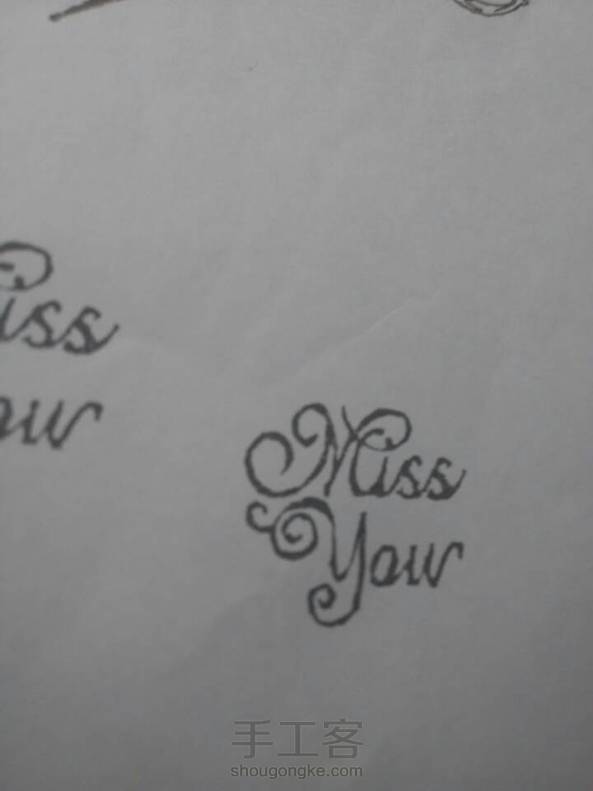 iss
ou
Miss
You
手工客
shougongke.com